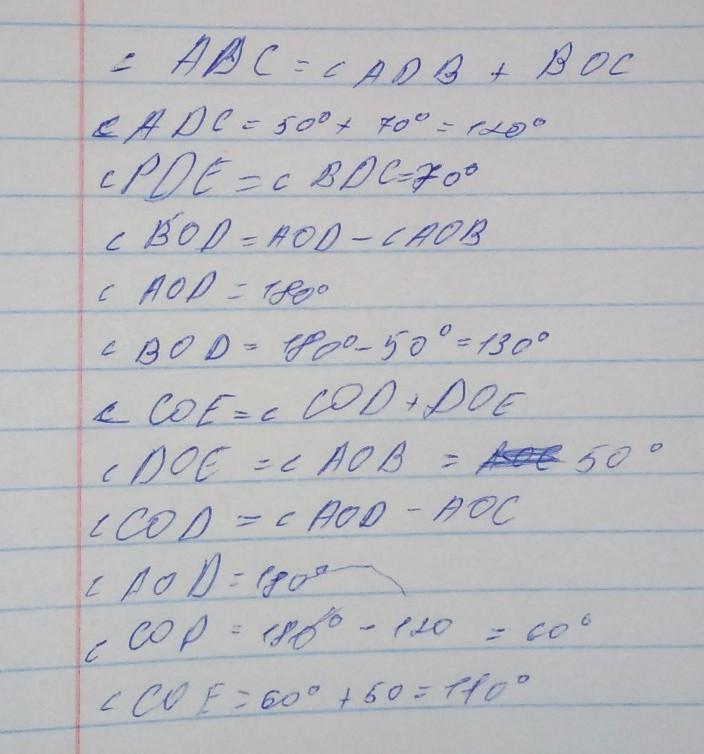 ∠ ABC = ∠ ADB + BOC
∠ ADC = 50° + 70° = 120°
∠ PDE = ∠ BDC = 70°
∠ BOD = AOD - ∠AOB
∠ AOD = 180°
∠ BOD = 180° - 50° = 130°
∠ COE = ∠ COD + DOE
∠ DOE = ∠ AOB = 50°
∠ COD = ∠ AOD - AOC
∠ AOD = 180°
∠ COD = 180° - 120 = 60°
∠ COE = 60° + 50 = 110°